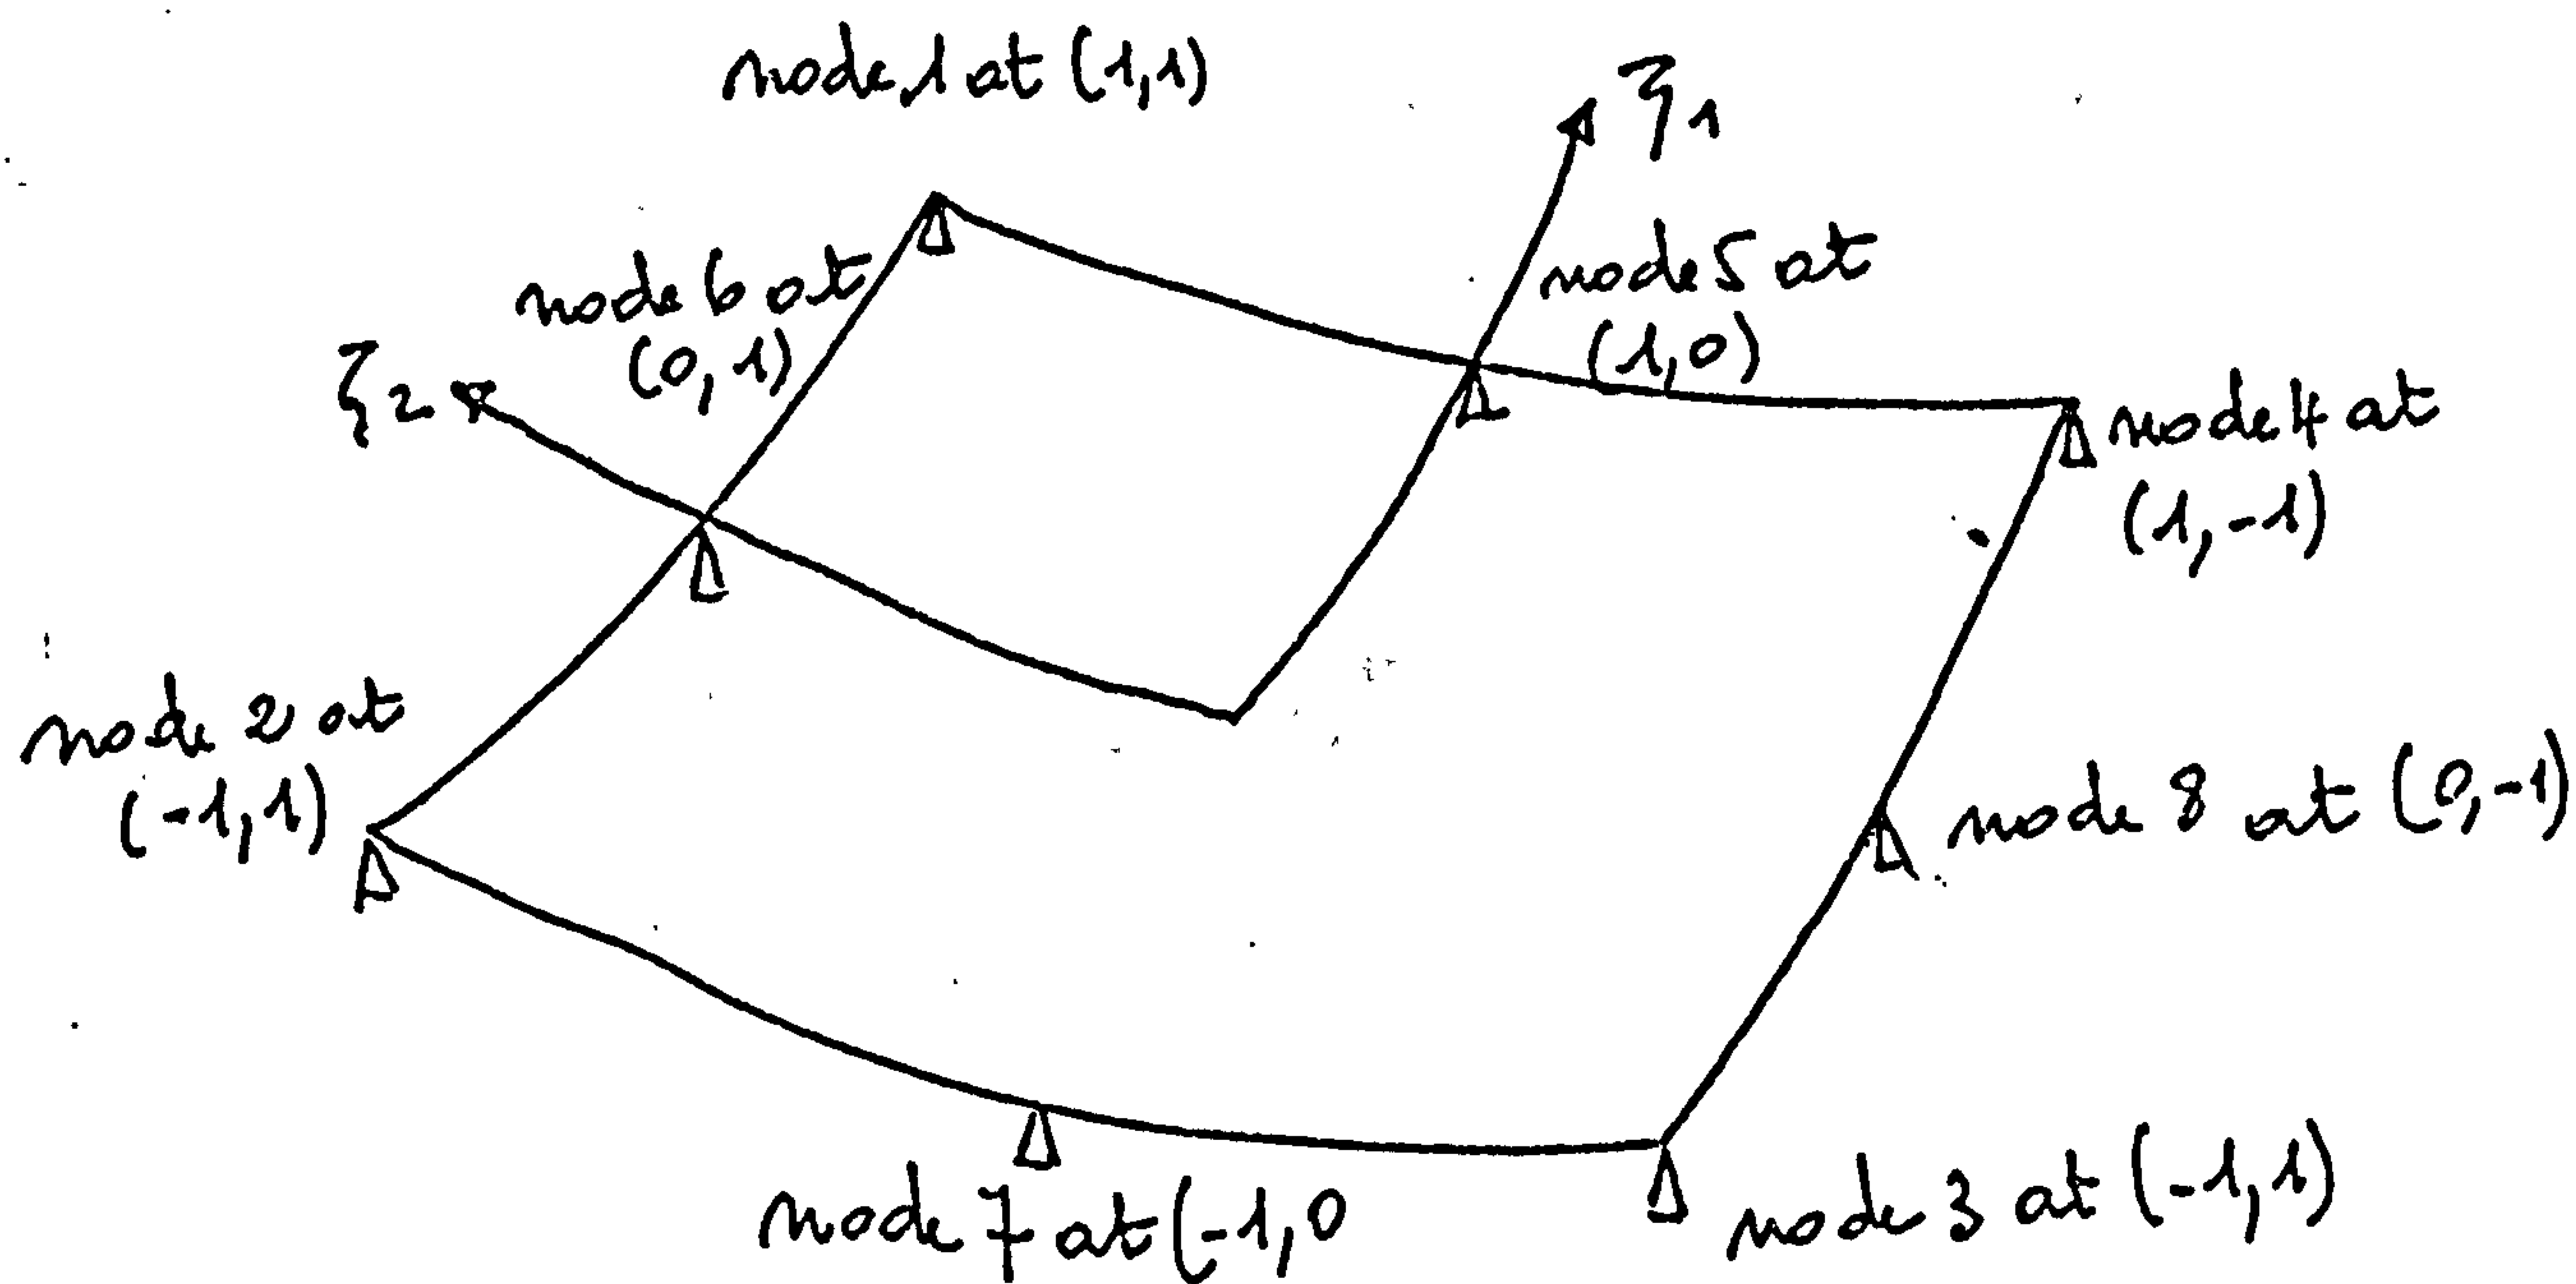 node 1 at (1,1)
ζ1
node 6 at
(0,1)
node 5 at
(1,0)
ζ2
node 4 at
(1,-1)
node 2 at
(-1,1)
node 8 at (0,-1)
node 7 at (-1,0
node 3 at (-1,1)